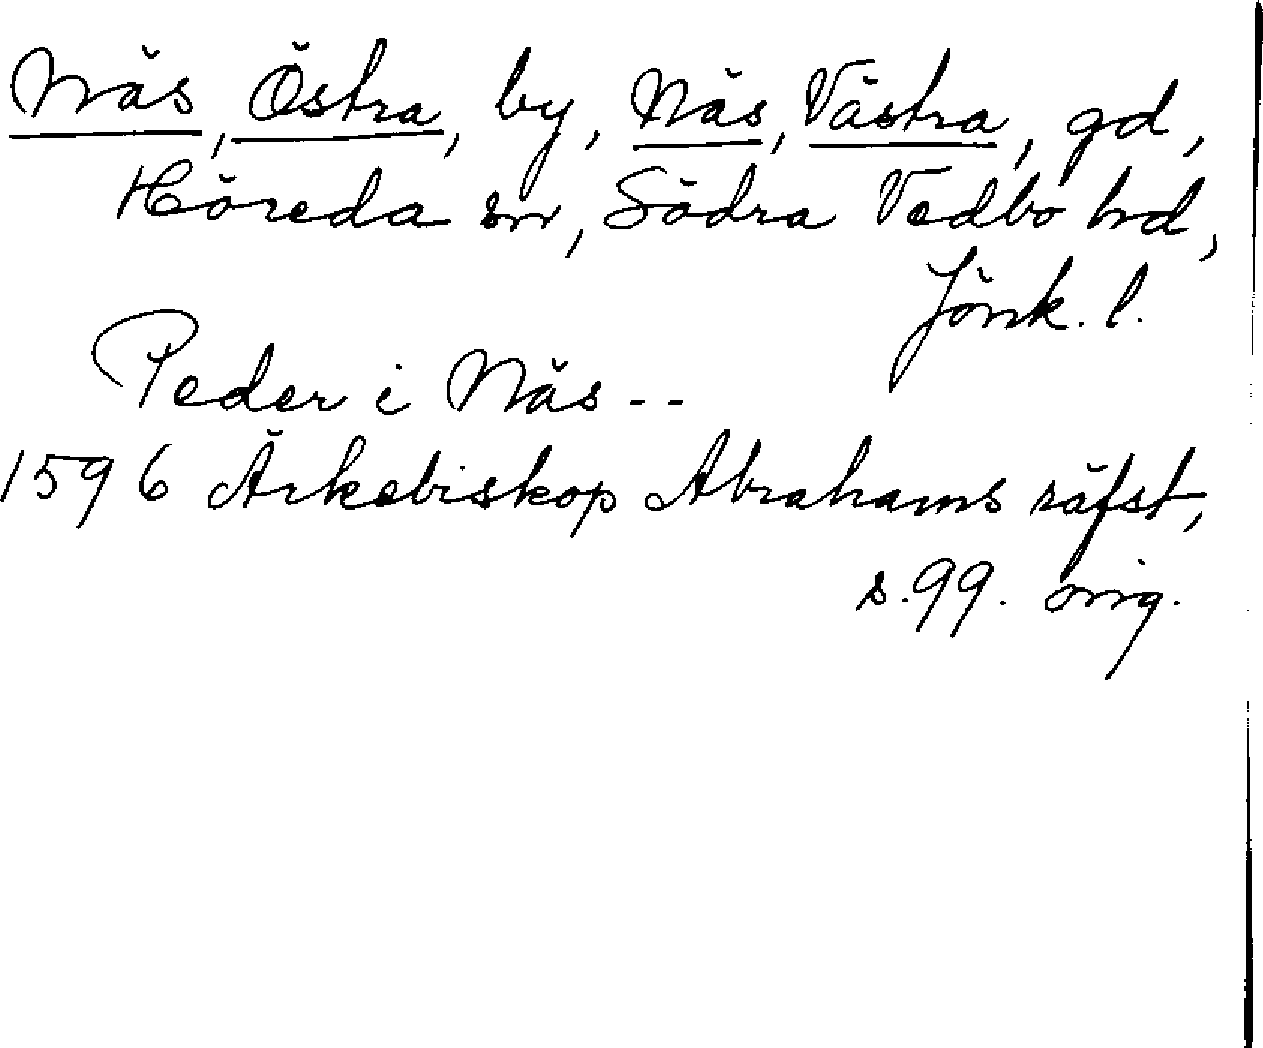 Näs, Östra, by, Näs, Västra, gd,
Höreda sn, Södra Vedbo hd,
Jönk. l.
Peder i Näs --
1596 Ärkebiskop Abrahams räfst,
s. 99. orig.